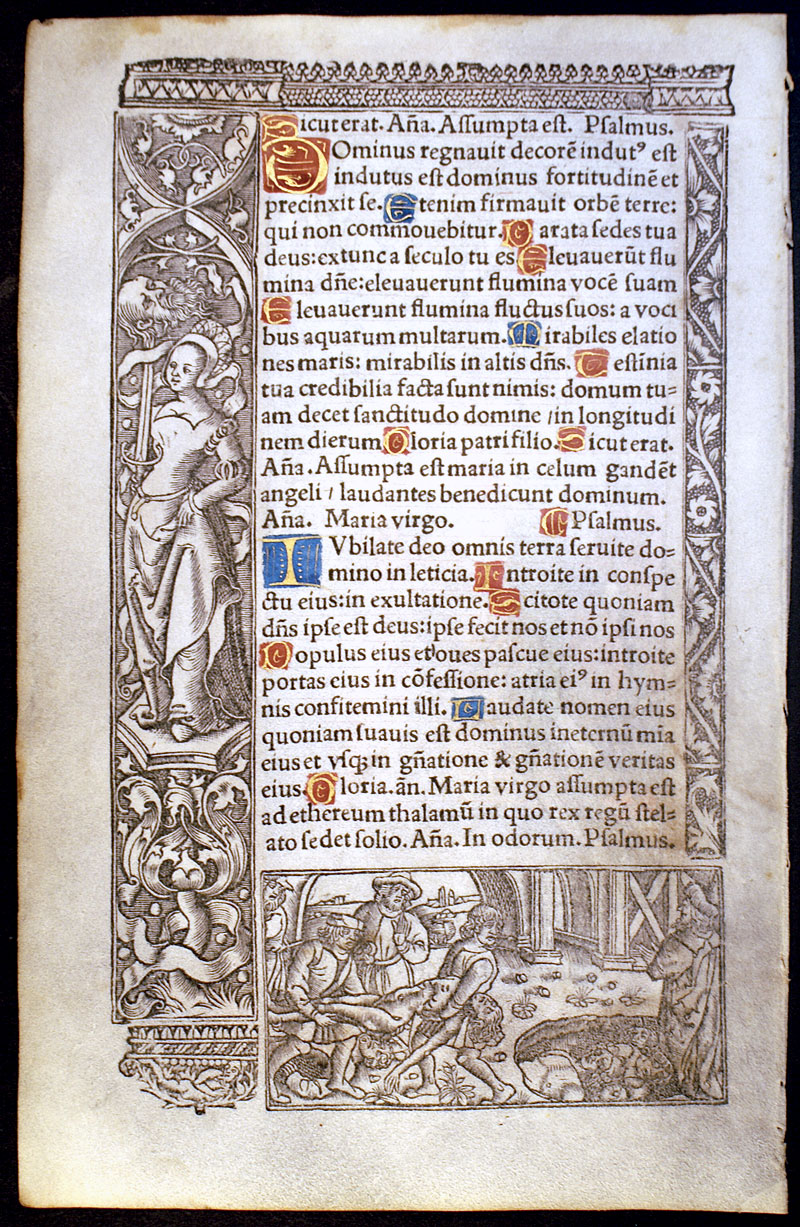 Sicut erat. Aña. Assumpta est. Psalmus.
DOminus regnauit decorē indutꝰ est
indutus est dominus fortitudinē et
precinxit se. Etenim firmauit orbē terre:
qui non commouebitur. Parata sedes tua
deus: extunc a seculo tu es Eleuauerūt flu
mina dñe: eleuauerunt flumina vocē suam
Eleuauerunt flumina fluctus suos: a voci
bus aquarum multarum. Mirabiles elatio
nes maris: mirabilis in altis dñs. Testinia
tua credibilia facta sunt nimis: domum tu=
am decet sanctitudo domine / in longitudi
nem dierum Gloria patri filio. Sicut erat.
Aña. Assumpta est maria in celum gandēt
angeli / laudantes benedicunt dominum.
Aña. Maria virgo. Psalmus.
IVbilate deo omnis terra seruite do=
mino in leticia. Introite in conspe
ctu eius: in exultatione. Scitote quoniam
dñs ipse est deus: ipse fecit nos et nō ipsi nos
Populus eius et oues pascue eius: introite
portas eius in cōfessione: atria eiꝰ in hym=
nis confitemini illi. Laudate nomen eius
quoniam suauis est dominus ineternū mīa
eius et vsqꝫ in gñatione & gñationē veritas
eius. Gloria. an̄. Maria virgo assumpta est
ad ethereum thalamū in quo rex regū stel=
lato sedet solio. Aña. In odorum. Psalmus.